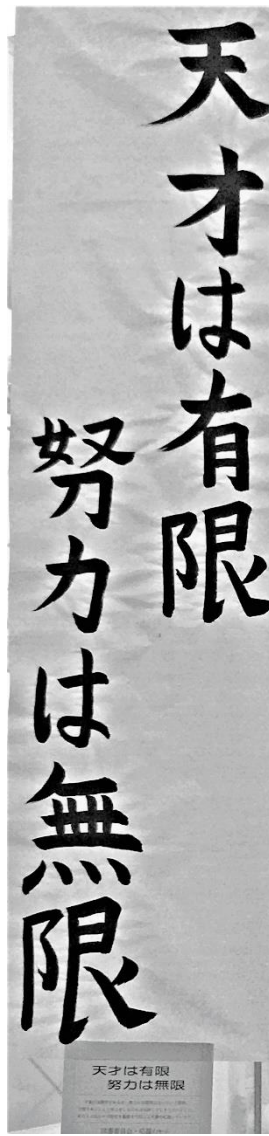 天才は有限
努力は無限
天才は有限
努力は無限